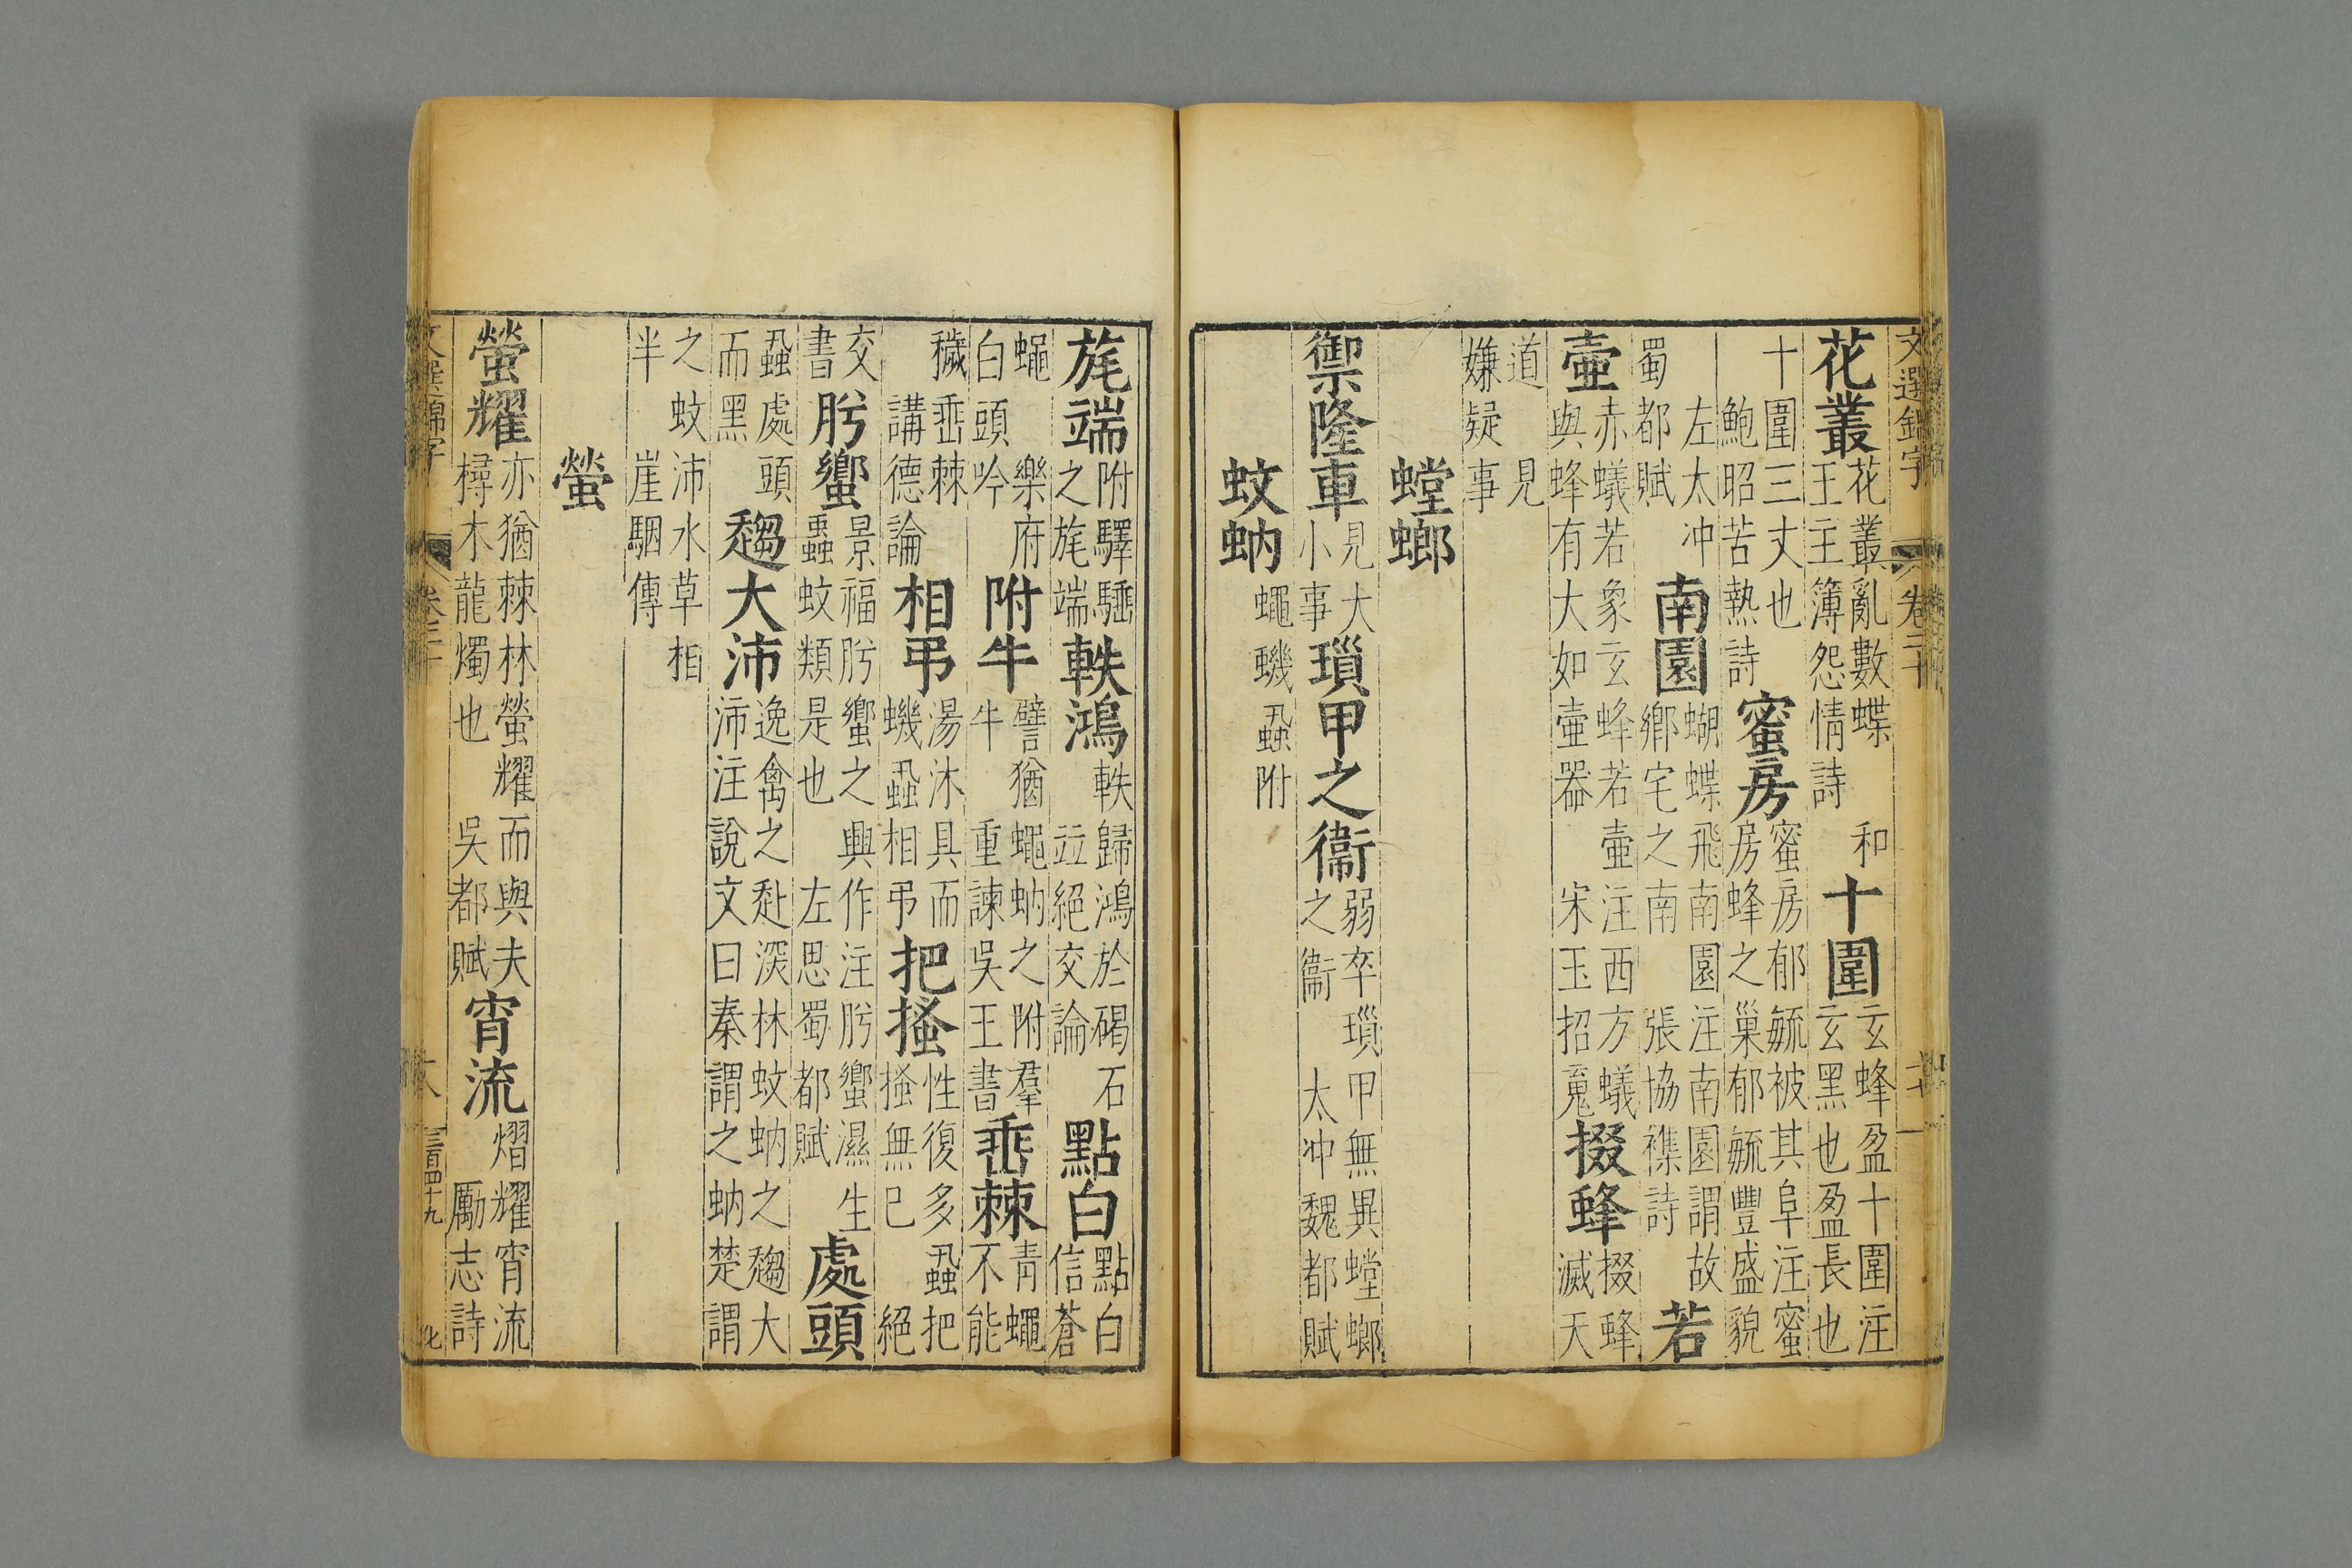 文選錦字 卷二十
花叢 花叢亂數蝶 和
王主簿怨情詩
十圍 玄蜂盈十圍注
玄黑也盈長也
十圍三丈也
鮑昭苦熱詩
蜜房 蜜房郁毓被其阜注蜜
房蜂之巢郁毓豐盛貌
左太冲
蜀都賦
南園 蝴蝶飛南園注南園謂故
鄉宅之南 張協襍詩
若
壺 赤蟻若象玄蜂若壺注西方蟻
與蜂有大如壺器 宋玉招䰟
掇蜂 掇蜂
滅天
道見
嫌疑事
螳螂
禦隆車 見大
小事
瑣甲之衞 弱卒瑣甲無異螳螂
之衞 太冲魏都賦
蚊蚋 蠅蟣蝨附
旄端 附驛
之旄端
軼鴻 軼歸鴻於碣石
竝絕交論
點白 點白
信蒼
蠅 樂府
白頭吟
附牛 譬猶蠅蚋之附羣
牛 重諫吳王書
垂棘 青蠅
不能
穢垂棘
講德論
相弔 湯沐具而
蟣蝨相弔
把搔 性復多蝨把
搔無已 絕
交
書
肸蠁 景福肸蠁之興作注肸蠁濕生
蟲蚊類是也 左思蜀都賦
處頭
蝨處頭
而黑
趨大沛 逸禽之赴深林蚊蚋之趨大
沛注說文曰秦謂之蚋楚謂
之蚊沛水草相
半 崖駰傳
螢
螢耀 亦猶棘林螢耀而與夫
樳木龍燭也 吳都賦
宵流 熠耀宵流
勵志詩
文選錦字 卷二十 十八 三百四十九